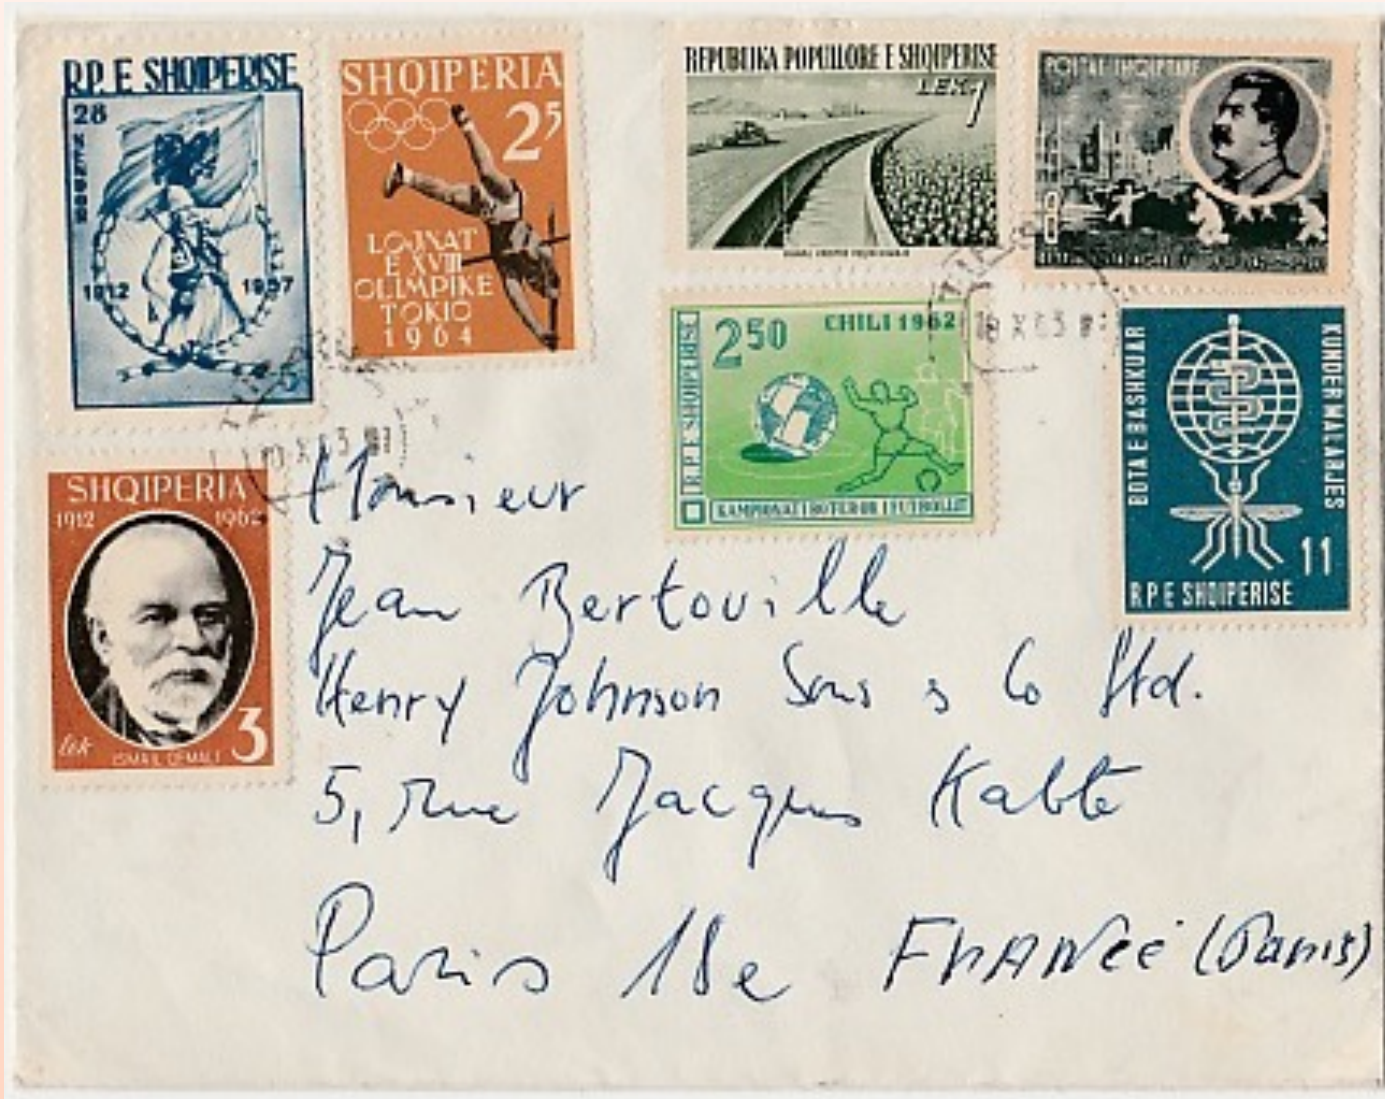 R.P. E SHQIPERISE
28
1912 1957
SHQIPERIA
25
LOJNAT
E XVIII
OLIMPIKE
TOKIO
1964
REPUBLIKA POPULLORE E SHQIPERISE
LEK 1
8
2 50
CHILI 1962
R.P.E SHQIPERISE
KAMPIONATI BOTEROR I FUTBOLLIT
BOTA E BASHKUAR
KUNDER MALARJES
11
R P E SHQIPERISE
X 63
X 63
SHQIPERIA
1912 1962
lek
3
ISMAIL QEMALI
Monsieur
Jean Bertoville
Henry Johnson Sons & Co Ltd.
5, Rue Jacques Kablé
Paris 18e FRANCE (Paris)